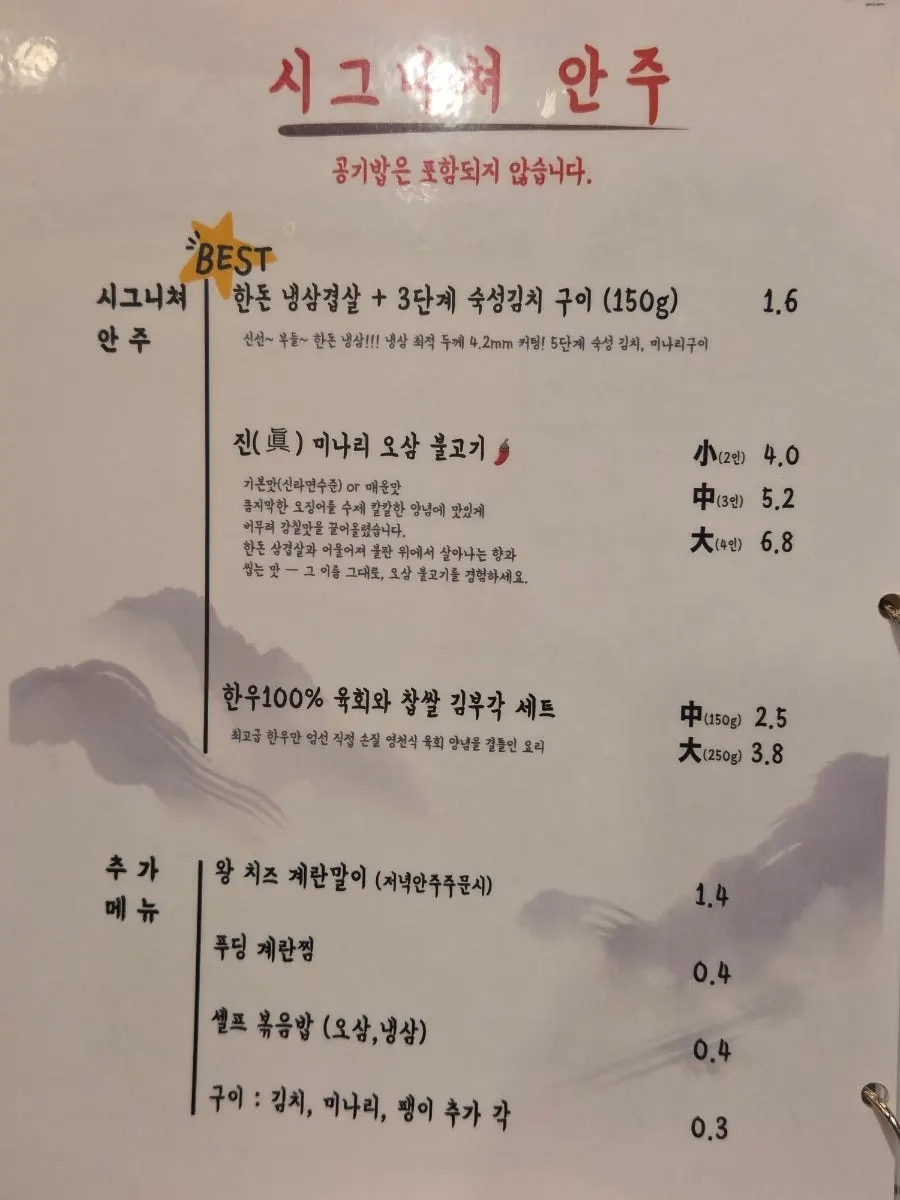 시그니쳐 안주
공기밥은 포함되지 않습니다.
BEST
시그니쳐
안주
한돈 냉삼겹살 + 3단계 숙성김치 구이 (150g) 1.6
신선~ 부들~ 한돈 냉삼!!! 냉삼 최적 두께 4.2mm 커팅! 5단계 숙성 김치, 미나리구이
진(眞) 미나리 오삼 불고기
小(2인) 4.0
中(3인) 5.2
大(4인) 6.8
기본맛(신라면수준) or 매운맛
큼지막한 오징어를 수제 칼칼한 양념에 맛있게
버무려 감칠맛을 끌어올렸습니다.
한돈 삼겹살과 어울어져 불판 위에서 살아나는 향과
씹는 맛 — 그 이름 그대로, 오삼 불고기를 경험하세요.
한우100% 육회와 찹쌀 김부각 세트
中(150g) 2.5
大(250g) 3.8
최고급 한우만 엄선 직접 손질 영천식 육회 양념을 곁들인 요리
추가
메뉴
왕 치즈 계란말이 (저녁안주주문시) 1.4
푸딩 계란찜 0.4
셀프 볶음밥 (오삼,냉삼) 0.4
구이 : 김치, 미나리, 팽이 추가 각 0.3